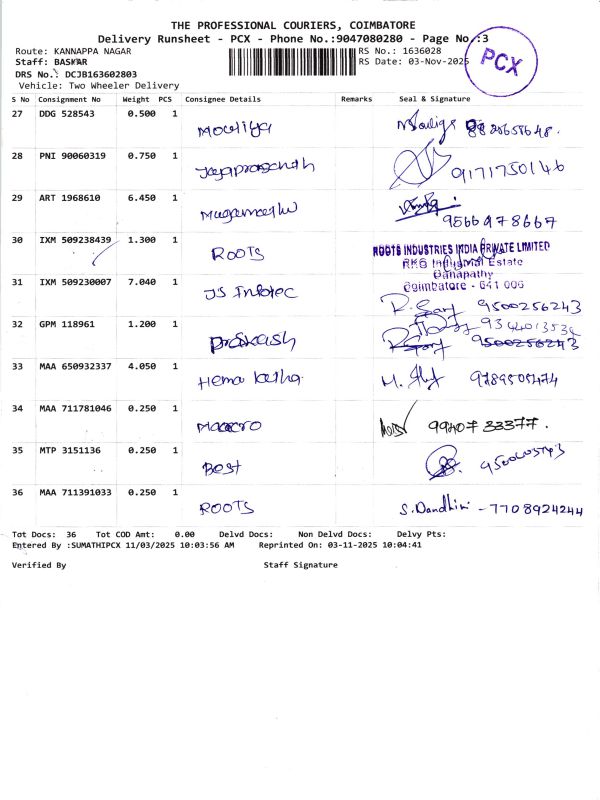 THE PROFESSIONAL COURIERS, COIMBATORE
Delivery Runsheet - PCX - Phone No.:9047080280 - Page No.:3
Route: KANNAPPA NAGAR
RS No.: 1636028
Staff: BASKAR
RS Date: 03-Nov-2025
PCX
DRS No.: DCJB163602803
Vehicle: Two Wheeler Delivery
S No Consignment No Weight PCS Consignee Details Remarks Seal & Signature
27 DDG 528543 0.500 1 Mouliya
28 PNI 90060319 0.750 1 Jayaprasanth 9171750146
29 ART 1968610 6.450 1 9566978667
30 IXM 509238439 1.300 1 ROOTS
ROOTS INDUSTRIES INDIA PRIVATE LIMITED
RKG Industrial Estate
Ganapathy
Coimbatore - 641 006
31 IXM 509230007 7.040 1 JS Infotec 9500256243
32 GPM 118961 1.200 1 Prakash
9500256243
33 MAA 650932337 4.050 1 Hema 9789505474
34 MAA 711781046 0.250 1 99407 33377.
35 MTP 3151136 0.250 1 Best
36 MAA 711391033 0.250 1 ROOTS S. Dandhini - 7708924244
Tot Docs: 36 Tot COD Amt: 0.00 Delvd Docs: Non Delvd Docs: Delvy Pts:
Entered By :SUMATHIPCX 11/03/2025 10:03:56 AM Reprinted On: 03-11-2025 10:04:41
Verified By Staff Signature